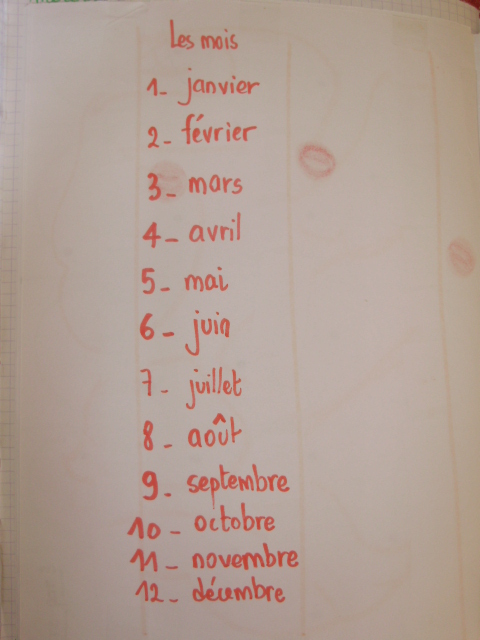 Les mois
1- janvier
2- février
3- mars
4- avril
5- mai
6- juin
7- juillet
8- août
9- septembre
10- octobre
11- novembre
12- décembre